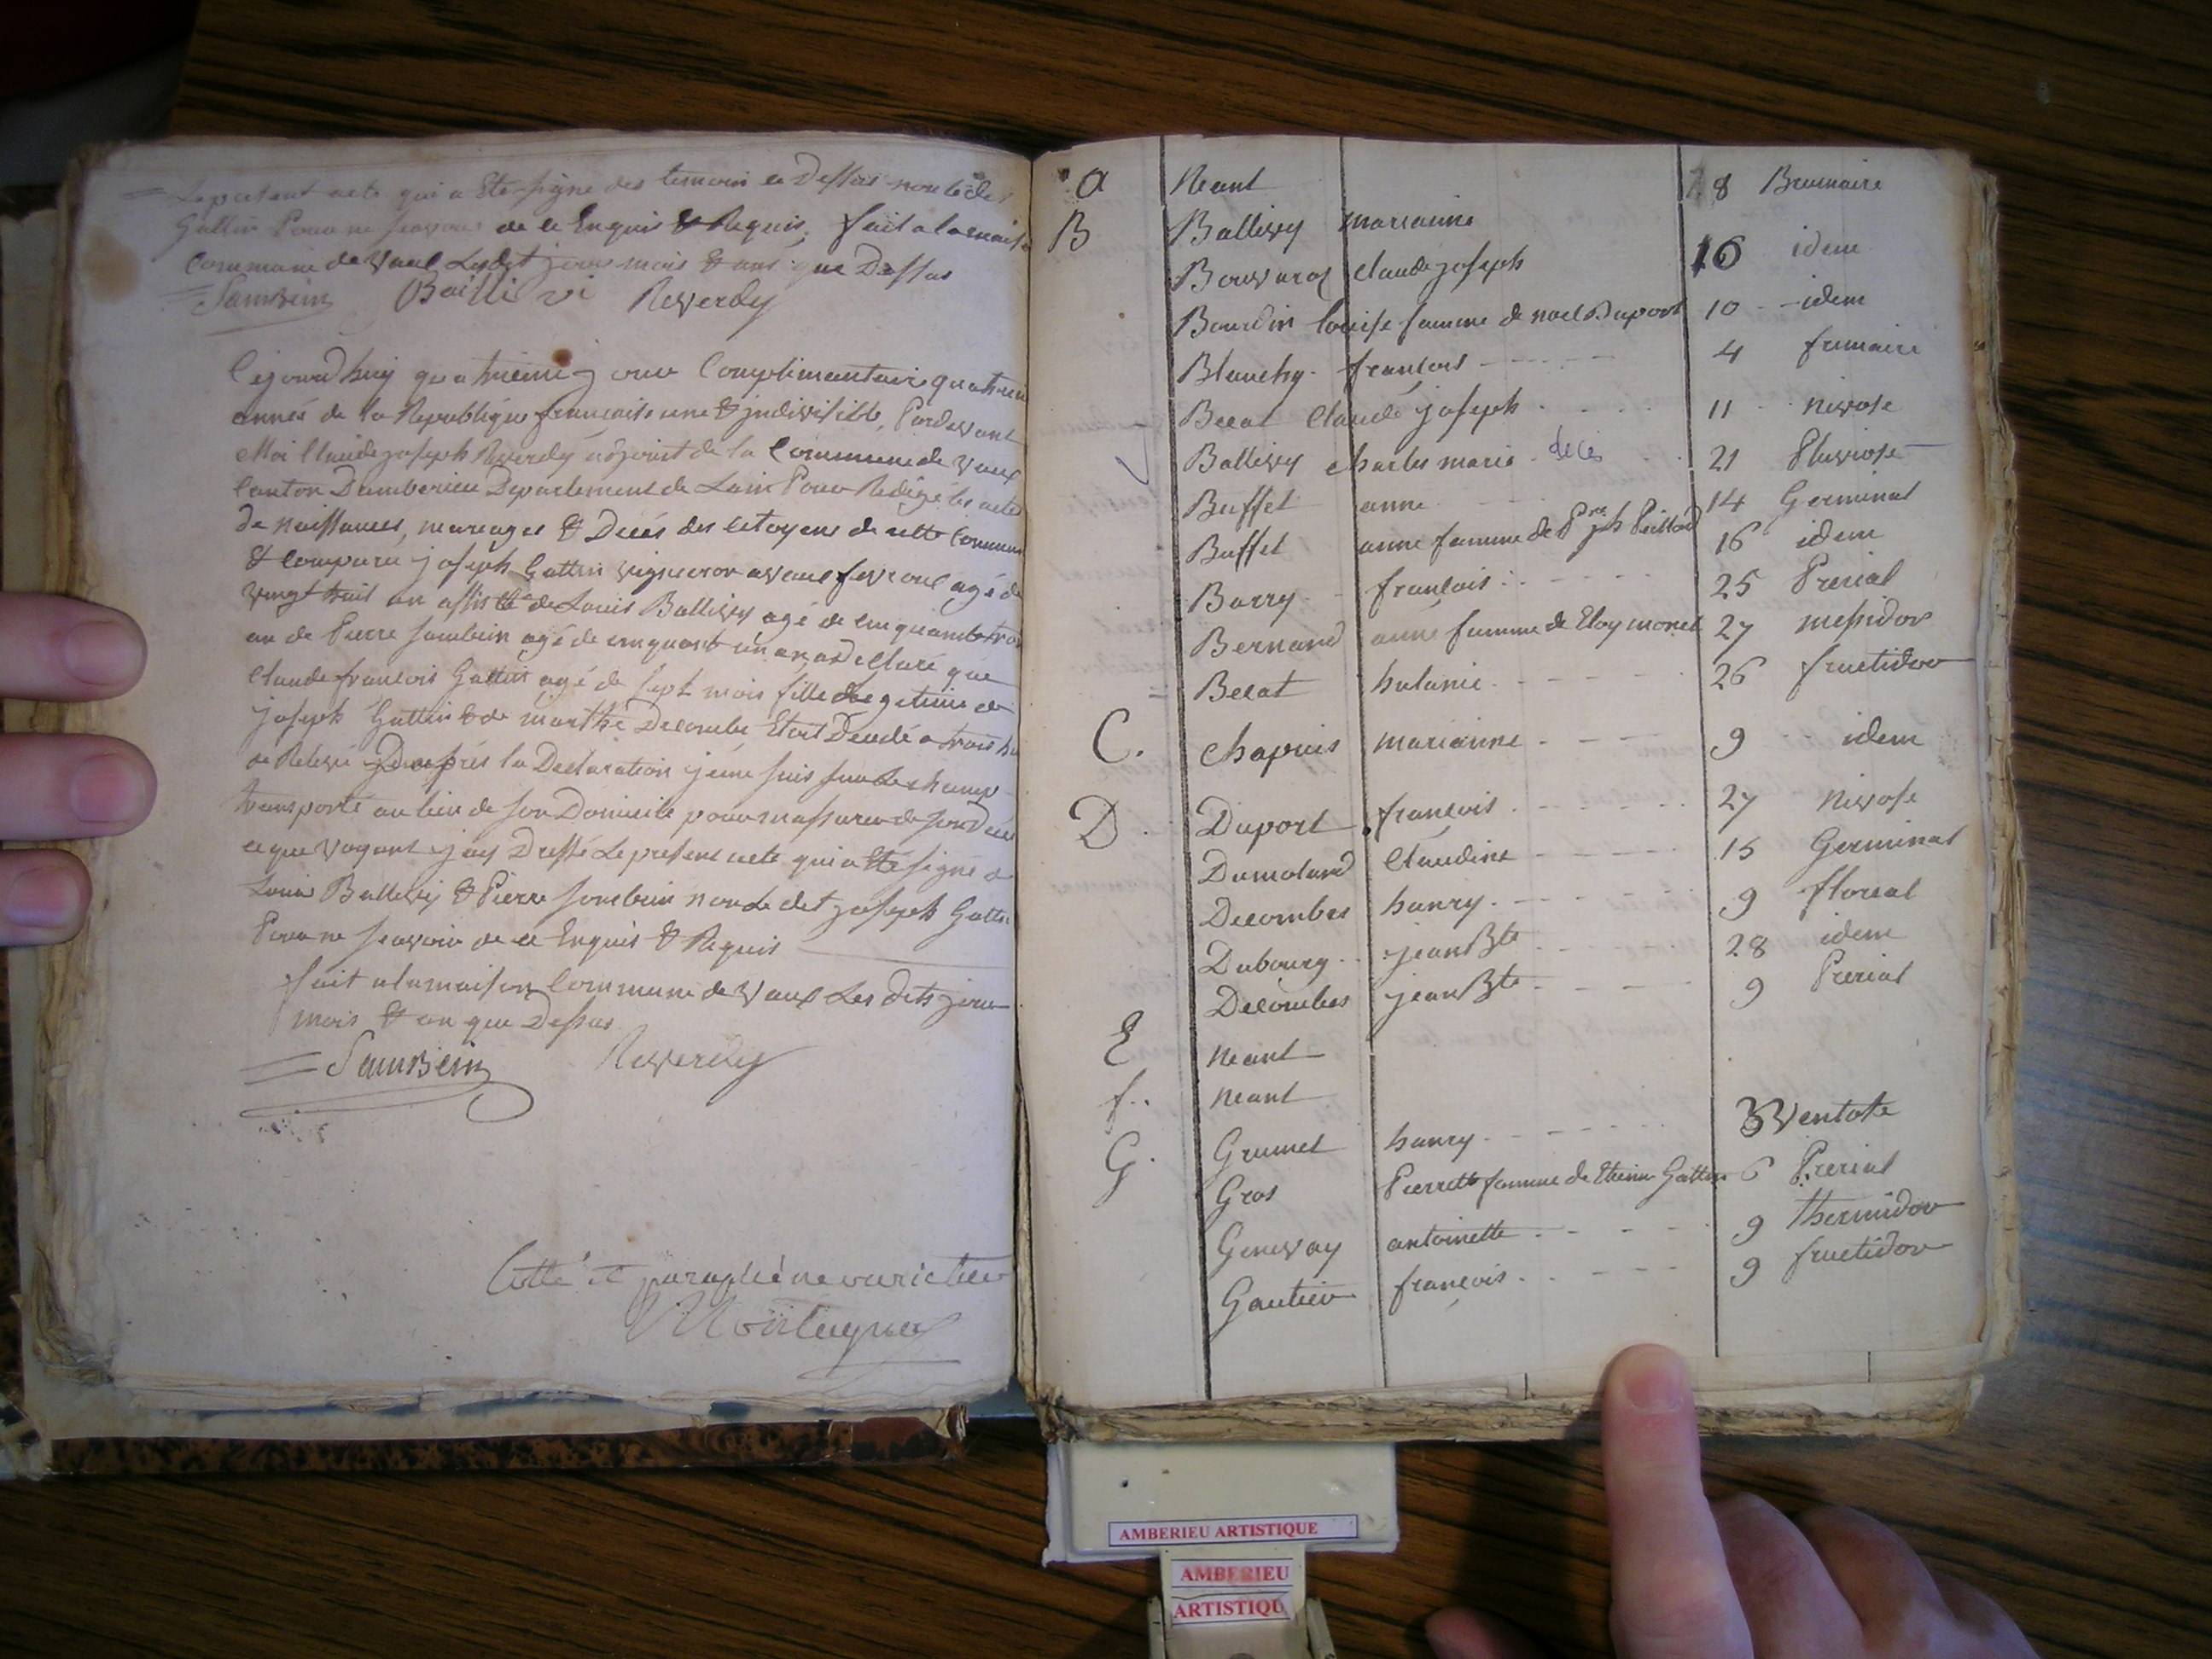 Le present acte qui a Ete signé des temoin ci Dessus non le dit
Guttin Pour ne scavoir de ce Enquis & Requis, fait a la maison
Commune de Vaux Ledit jour mois & ans que Dessus
Sambin Baillivi Reverdy
Cejourd'huy quatrieme jour Complimentaire quatrieme
année de la Republique francaise une & jndivisible, Pardevant
Moi Claude joseph Reverdy adjoint de la Commune de Vaux
Canton Damberieu Departement de Lain Pour Redigé les actes
de Naissances, mariages & Décés des Citoyens de cette Commune
& Comparu joseph Guttin vigneron a vaux fevroux agé de
vingt huit an assisté de Louis Ballivy agé de cinquante trois
an de Pierre Sambin agé de cinquante un an a declaré que
Claude francois Guttin agé de sept mois fille legetime de
joseph Guttin & de marthe Decombe Etoit Decedé a trois
de Relevé Daprés la Declaration je me suis sur Le champ
transporté au lieu de son Domicile pour massurer de son Décé
ce que voyant jay Dressé Le present acte qui a Eté signé de
Louis Ballivy & Pierre Sambin non Le dit joseph Guttin
Pour ne scavoir de ce Enquis & Requis
fait a la maison Commune de Vaux Les dits jour
mois & an que Dessus
Sambin Reverdy
Cotté et paraphé ne varietur
Montagner
a Neant 8 Brumaire
B Ballivy marianne
Bouvard Claude joseph 16 idem
Bourdin louise famme de noel Duport 10 idem
Blanchy francois 4 frimaire
Becat Claude joseph 11 Nivose
Ballivy charles marie décés 21 Pluviose
Buffet anne 14 Germinal
Buffet anne famme de Pre jph Peillod 16 idem
Barry francois 25 Prerial
Bernard anne famme de Eloy monet 27 messidor
Becat hulanie 26 fructidor
C. Chapuis marianne 9 idem
D Duport francois 27 Nivose
Dumolard Claudine 15 Germinal
Decombes hanry 9 floreal
Dubourg jean Bte 28 idem
Decombes jean Bte 9 Prerial
E Neant
f.. Neant
G. Grumet hanry 3 Ventose
Gros Pierrette famme de Etienne Guttin 6 Prerial
Genevay antoinette 9 thermidor
Gautier francois 9 fructidor
AMBERIEU ARTISTIQUE
AMBERIEU
ARTISTIQU